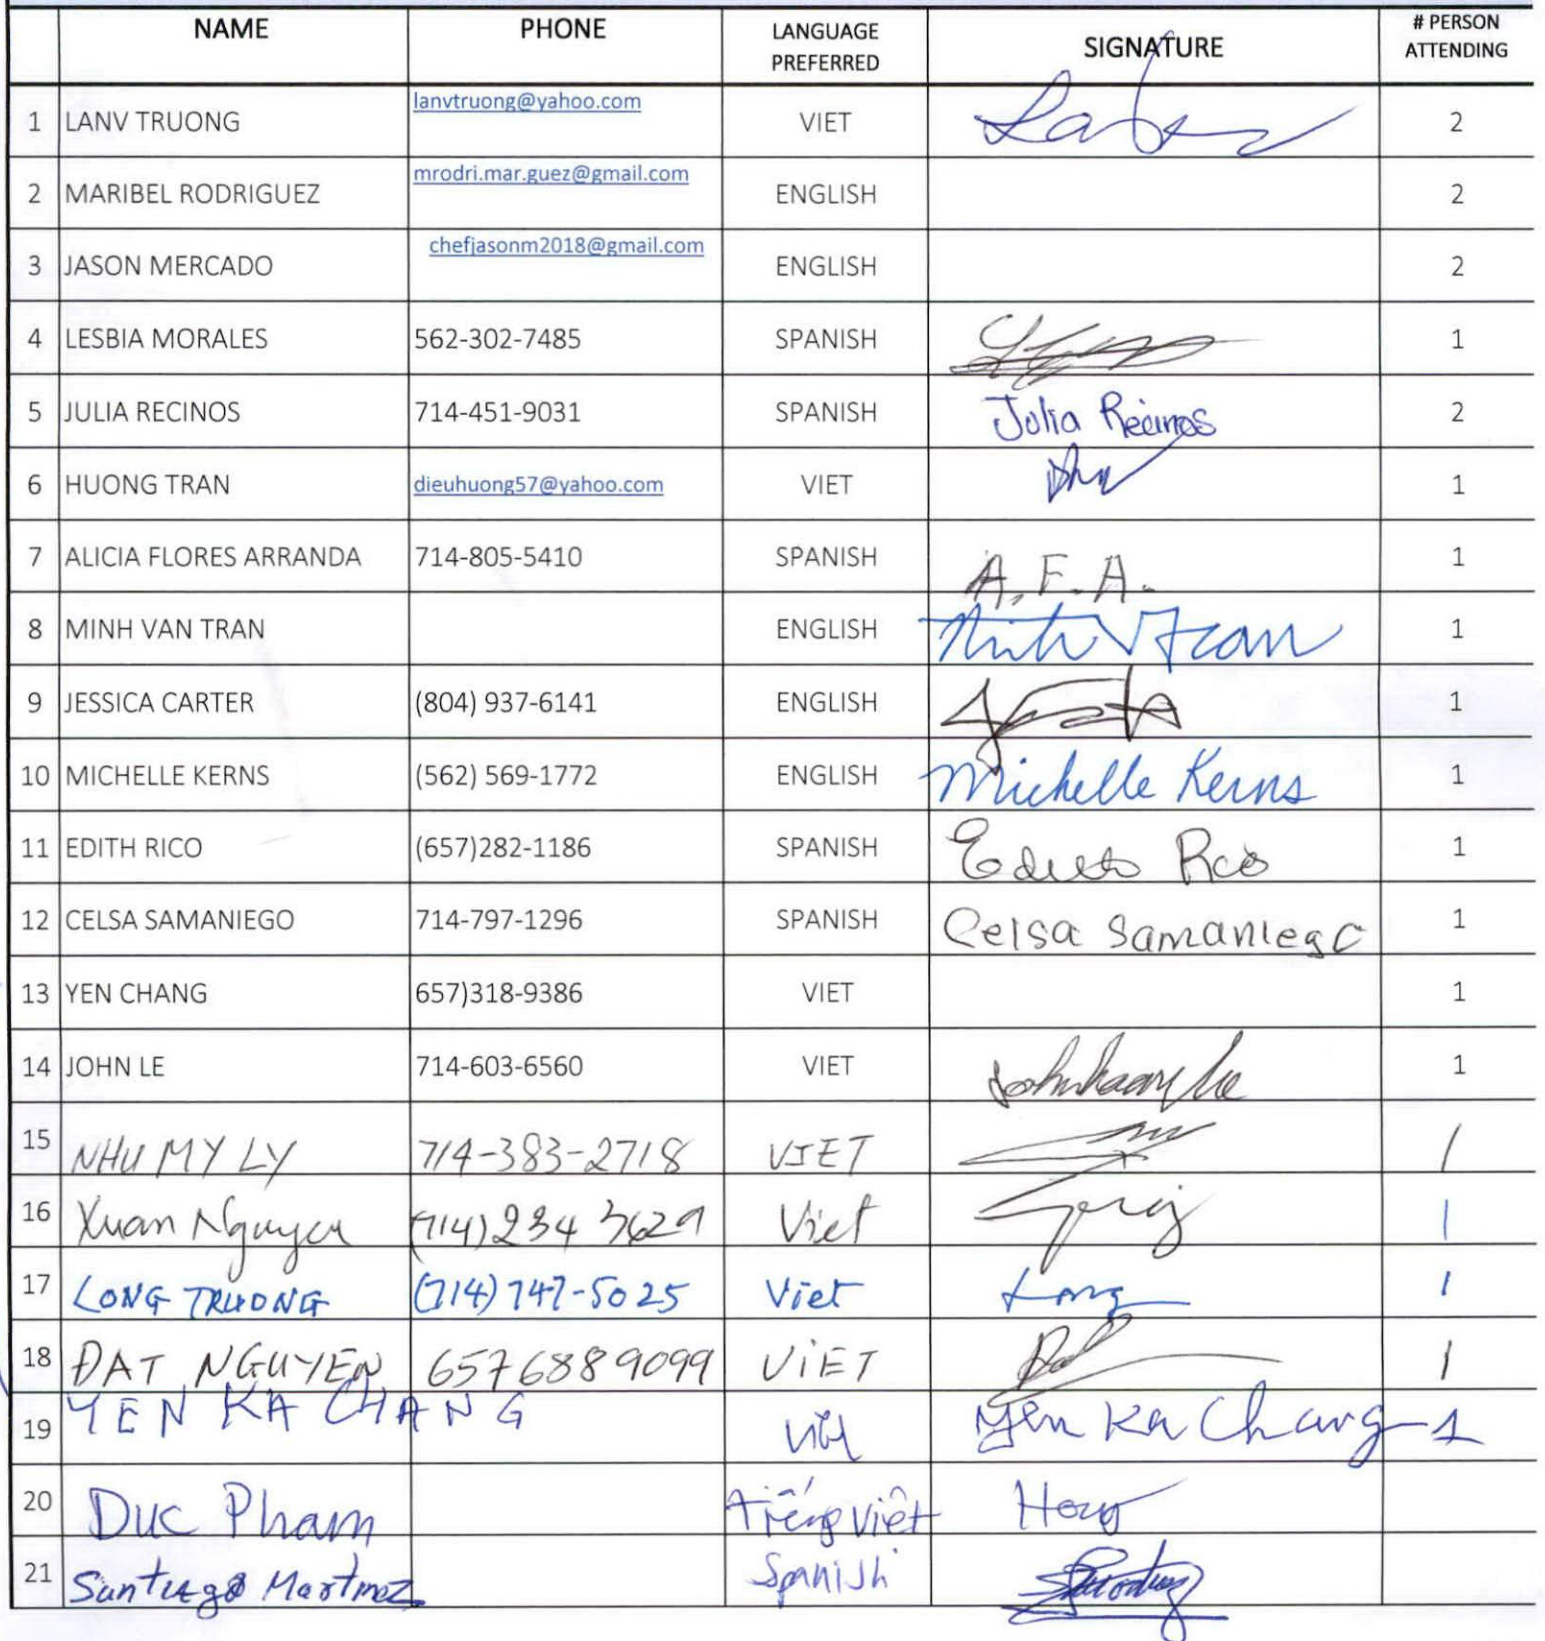 NAME PHONE LANGUAGE PREFERRED SIGNATURE # PERSON ATTENDING
1 LANV TRUONG lanvtruong@yahoo.com VIET 2
2 MARIBEL RODRIGUEZ mrodri.mar.guez@gmail.com ENGLISH 2
3 JASON MERCADO chefjasonm2018@gmail.com ENGLISH 2
4 LESBIA MORALES 562-302-7485 SPANISH 1
5 JULIA RECINOS 714-451-9031 SPANISH Julia Recinos 2
6 HUONG TRAN dieuhuong57@yahoo.com VIET 1
7 ALICIA FLORES ARRANDA 714-805-5410 SPANISH A.F.A. 1
8 MINH VAN TRAN ENGLISH 1
9 JESSICA CARTER (804) 937-6141 ENGLISH 1
10 MICHELLE KERNS (562) 569-1772 ENGLISH Michelle Kerns 1
11 EDITH RICO (657)282-1186 SPANISH 1
12 CELSA SAMANIEGO 714-797-1296 SPANISH Celsa Samaniego 1
13 YEN CHANG 657)318-9386 VIET 1
14 JOHN LE 714-603-6560 VIET 1
15 NHU MY LY 714-383-2718 VIET 1
16 Xuan Nguyen (714) 234 3629 Viet 1
17 LONG TRUONG (714) 747-5025 Viet Long 1
18 ĐAT NGUYEN 6576889099 ViET 1
19 YEN KA CHANG Việt Yen Ka Chang 1
20 Duc Pham Tiếng Việt
21 Santiago Martinez Spanish